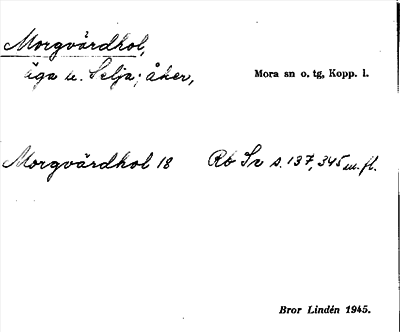 Morgvårdhol,
äga u. Selja; åker,
Mora sn o. tg, Kopp. l.
Morgvårdhol 18 Rb Sv s. 137, 345 m. fl.
Bror Lindén 1945.